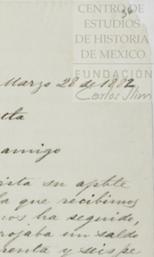 CENTRO DE
ESTUDIOS
DE HISTORIA
DE MEXICO
FUNDACIÓN
Carlos Slim
Marzo 28 de 1882
amigo
su aptble
a que recibimos
nos ha seguido,
rojaba un saldo
renta y seis pe